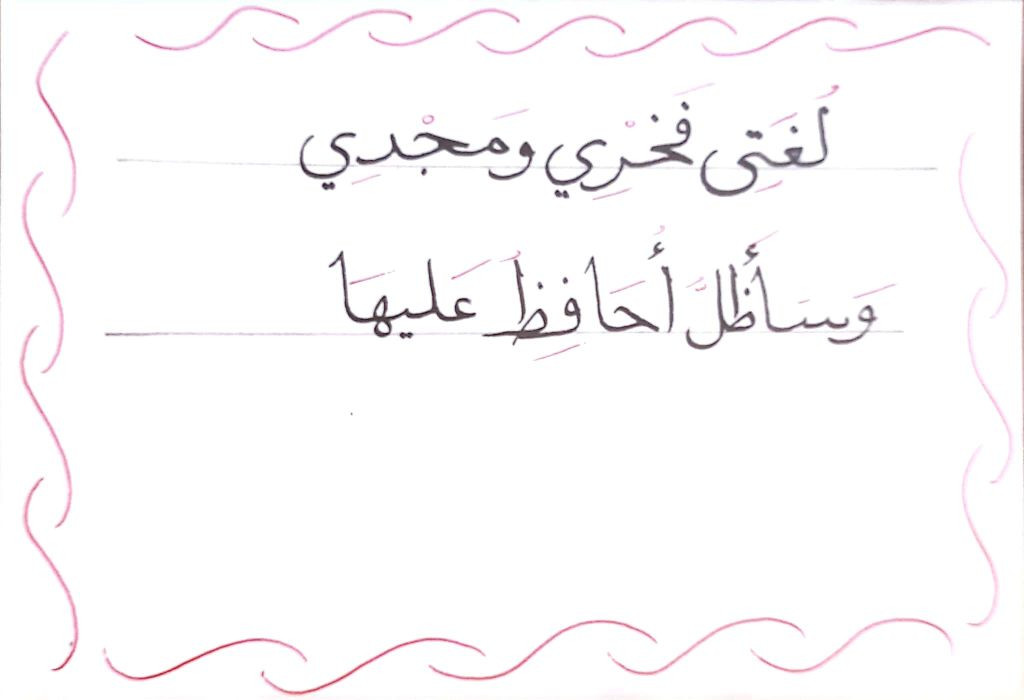 لُغَتِى فَخْرِي وَمَجْدِي
وَسَأَظَلُّ أُحَافِظُ عَليهَا